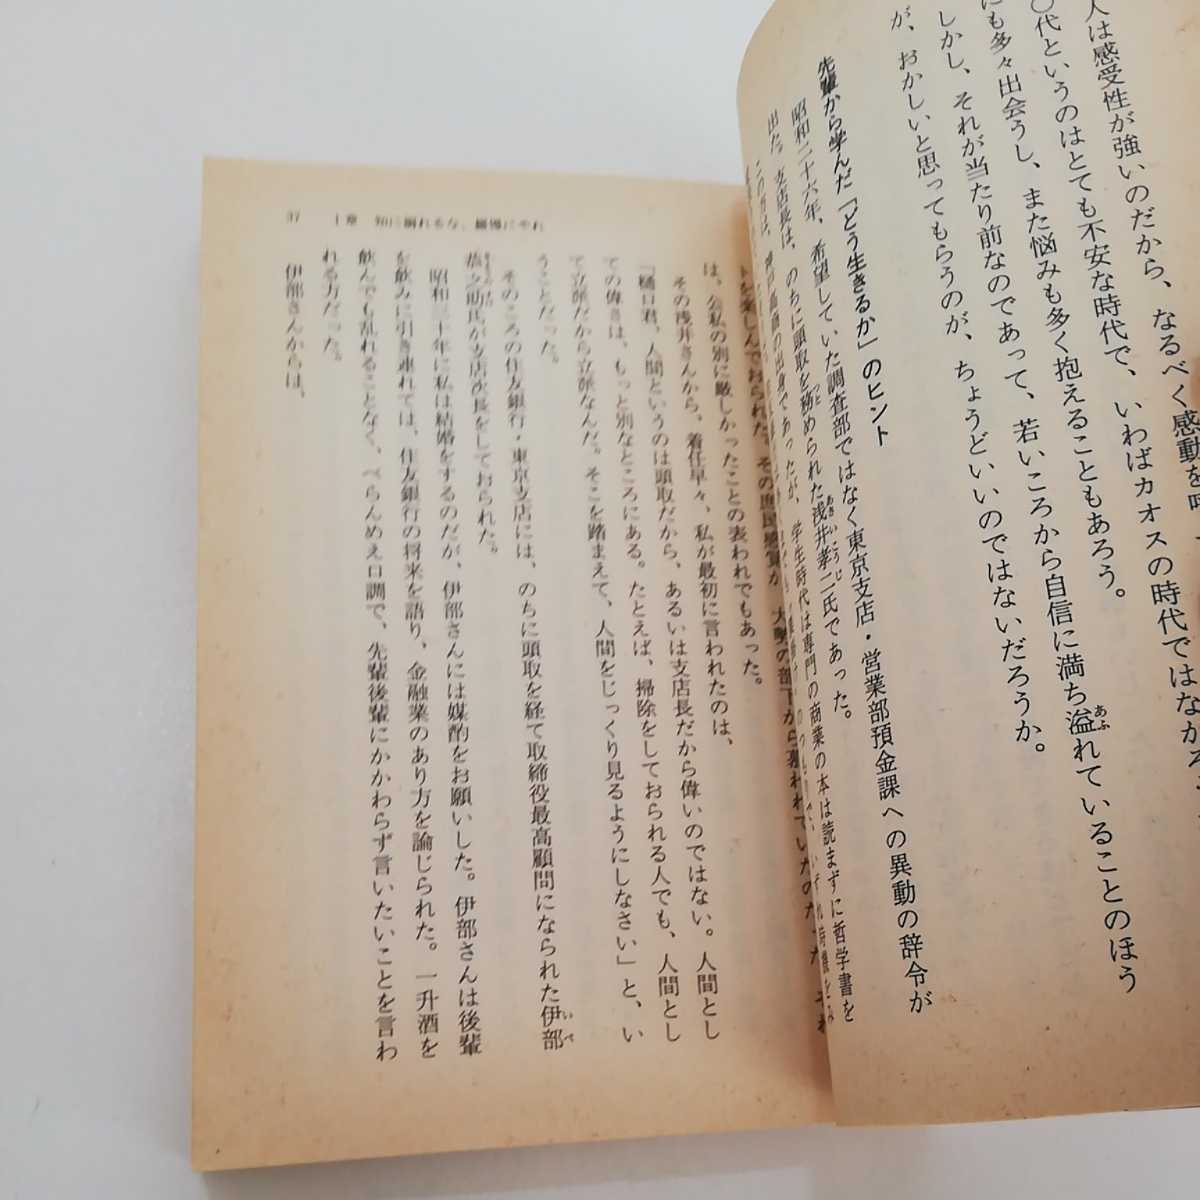 人は感受性が強いのだから、なるべく感動を
代というのはとても不安な時代で、いわばカオスの時代ではなかろ
にも多々出会うし、また悩みも多く抱えることもあろう。
しかし、それが当たり前なのであって、若いころから自信に満ち溢れていることのほう
が、おかしいと思ってもらうのが、ちょうどいいのではないだろうか。
先輩から学んだ「どう生きるか」のヒント
昭和二十六年、希望していた調査部ではなく東京支店・営業部預金課への異動の辞令が
出た。支店長は、のちに頭取を務められた浅井孝二氏であった。
この方は、神戸高商の出身であったが、学生時代は専門の商業の本は読まずに哲学書を
トを楽しんでおられた。その庶民感覚が、大勢の部下から慕われていたのだ
は、公私の別に厳しかったことの表われでもあった。
その浅井さんから、着任早々、私が最初に言われたのは、
「樋口君、人間というのは頭取だから、あるいは支店長だから偉いのではない。人間とし
ての偉さは、もっと別なところにある。たとえば、掃除をしておられる人でも、人間とし
て立派だから立派なんだ。そこを踏まえて、人間をじっくり見るようにしなさい」と、い
うことだった。
そのころの住友銀行・東京支店には、のちに頭取を経て取締役最高顧問になられた伊部
恭之助氏が支店次長をしておられた。
昭和三十年に私は結婚をするのだが、伊部さんには媒酌をお願いした。伊部さんは後輩
を飲みに引き連れては、住友銀行の将来を語り、金融業のあり方を論じられた。一升酒を
飲んでも乱れることなく、べらんめえ口調で、先輩後輩にかかわらず言いたいことを言わ
れる方だった。
伊部さんからは、
37 1章 知に溺れるな、